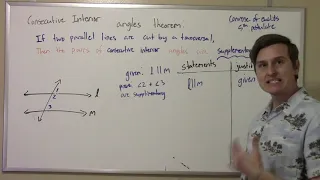 Consecutive Interior angles theorem.
converse of euclids
5th postulate
If two parallel lines are cut by a transversal,
Then the pairs of consecutive interior angles are supplementary
given: l || m
prove ∠2 + ∠3
are supplimentary
statements
l || m
given
1
2
3
l
m